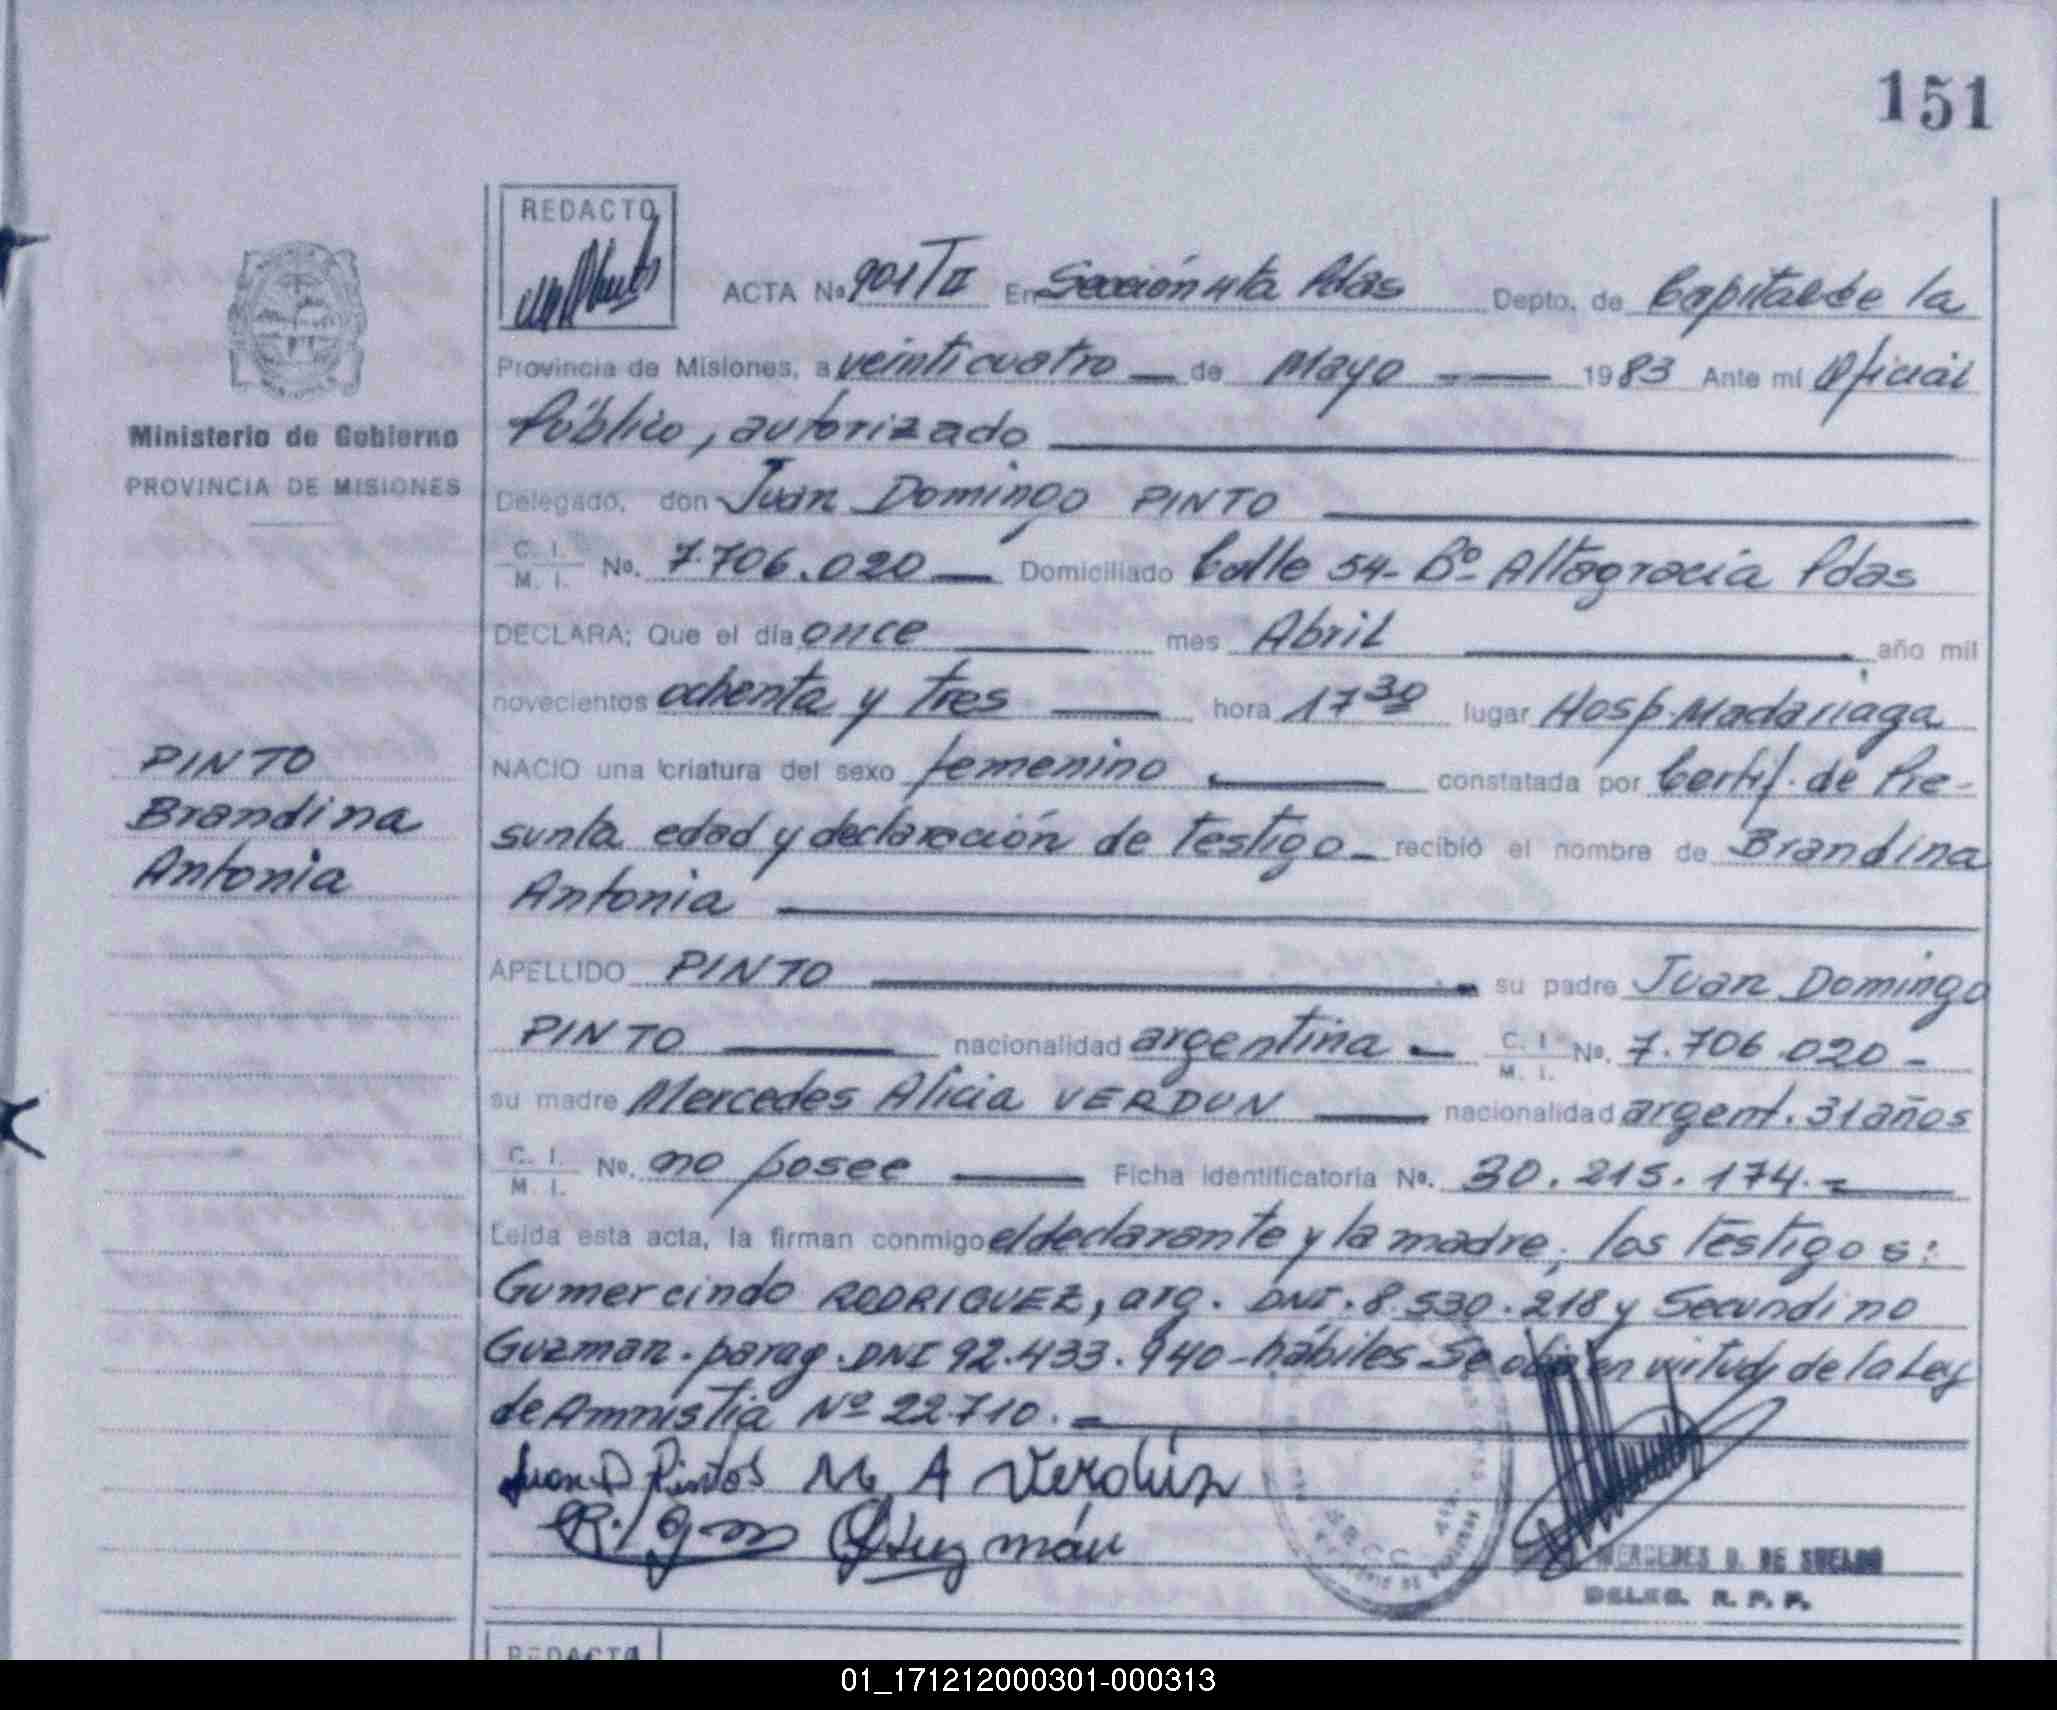 151
REDACTO
ACTA No. 901/II En Sección 4ta Pdas Depto. de Capital de la
Provincia de Misiones, a veinticuatro de Mayo 1983 Ante mí Oficial
Ministerio de Gobierno
Público, autorizado
PROVINCIA DE MISIONES
Delegado, don Juan Domingo PINTO
C. I. M. I. No. 7.706.020 Domiciliado Calle 54-Bº Altagracia Pdas
DECLARA; Que el día once mes Abril año mil
novecientos ochenta y tres hora 17 30 lugar Hosp. Madariaga
PINTO
NACIO una criatura del sexo femenino constatada por Certif. de Pre-
Brandina
sunta edad y declaración de testigo recibió el nombre de Brandina
Antonia
Antonia
APELLIDO PINTO su padre Juan Domingo
PINTO nacionalidad argentina C. I. M. I. No. 7.706.020-
su madre Mercedes Alicia VERDUN nacionalidad argent. 31 años
C. I. M. I. No. no posee Ficha identificatoria No. 30.215.174.-
Leída esta acta, la firman conmigo el declarante y la madre, los testigos:
Gumercindo RODRIGUEZ, arg. DNI. 8.530.218 y Secundino
Guzman. parag. DNI 92.433.940-hábiles-Se en virtud de la Ley
de Amnistia Nº 22.710.-
Juan D Pintos M A Verdún
Guzmán
MERCEDES D. DE SUELDO
DELEG. R. P. P.
REDACTO
01_171212000301-000313